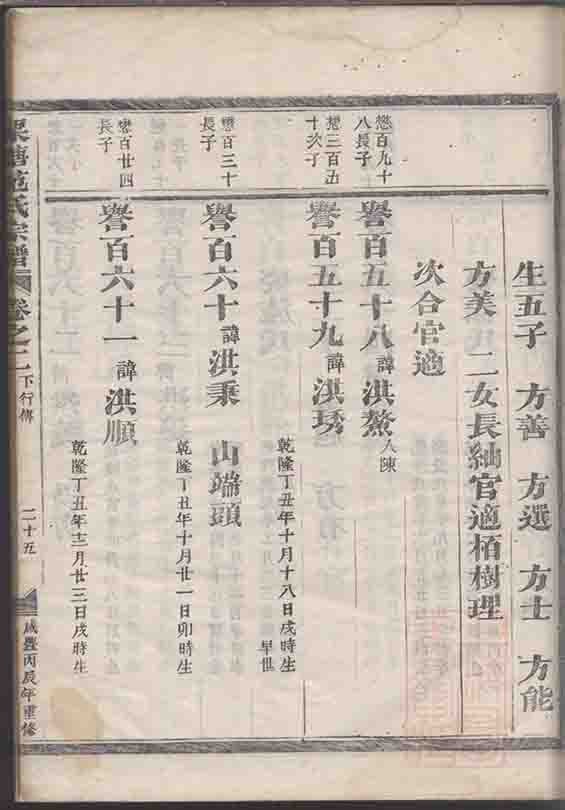 生五子 方善 方選 方士 方能
方美 二女長紬官適栢樹理
次合官適
懋百九十八長子
譽百五十八 諱洪鰲 入陳
懋三百五十次子
譽百五十九 諱洪琇 乾隆丁丑年十月十八日戌時生 早世
懋百三十長子
譽百六十 諱洪秉 山端頭 乾隆丁丑年十月廿一日卯時生
懋百廿四長子
譽百六十一 諱洪順 乾隆丁丑年十二月廿三日戌時生
范氏宗譜 卷之二 下行傳 二十五 咸豐丙辰年重修